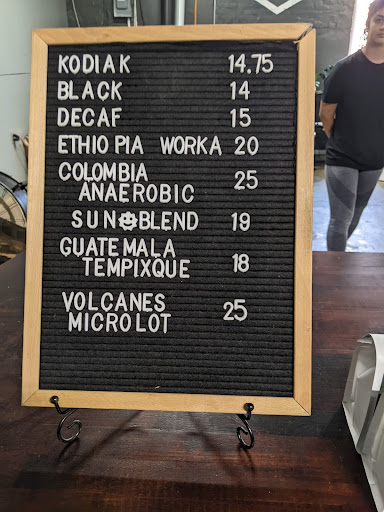 KODIAK 14.75
BLACK 14
DECAF 15
ETHIOPIA WORKA 20
COLOMBIA
ANAEROBIC 25
SUN BLEND 19
GUATEMALA
TEMPIXQUE 18
VOLCANES
MICROLOT 25